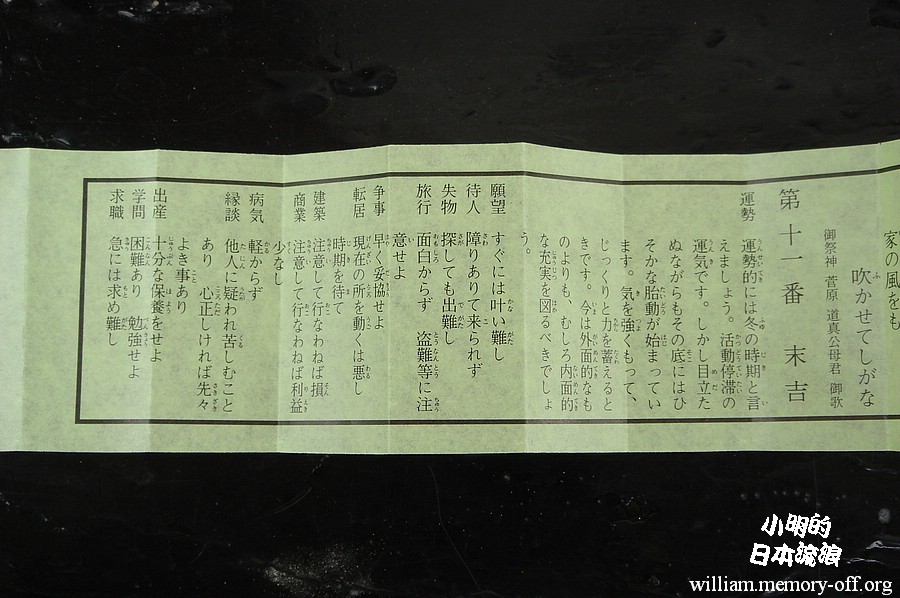 家の風をも
吹かせてしがな
御祭神 菅原 道真公母君 御歌
第十一番 末吉
運勢 運勢的には冬の時期と言
えましょう。活動停滞の
運気です。しかし目立た
ぬながらもその底にはひ
そかな胎動が始まってい
ます。気を強くもって、
じっくりと力を蓄えると
きです。今は外面的なも
のよりも、むしろ内面的
な充実を図るべきでしょ
う。
願望 すぐには叶い難し
待人 障りありて来られず
失物 探しても出難し
旅行 面白からず 盗難等に注
意せよ
争事 早く妥協せよ
転居 現在の所を動くは悪し
時期を待て
建築 注意して行なわねば損
商業 注意して行なわねば利益
少なし
病気 軽からず
縁談 他人に疑われ苦しむこと
あり 心正しければ先々
よき事あり
出産 十分な保養をせよ
学問 困難あり 勉強せよ
求職 急には求め難し
小明的
日本流浪
william.memory-off.org